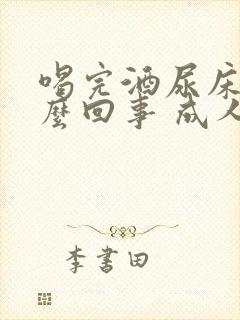 喝完酒尿床
麽回事 成人
李書田